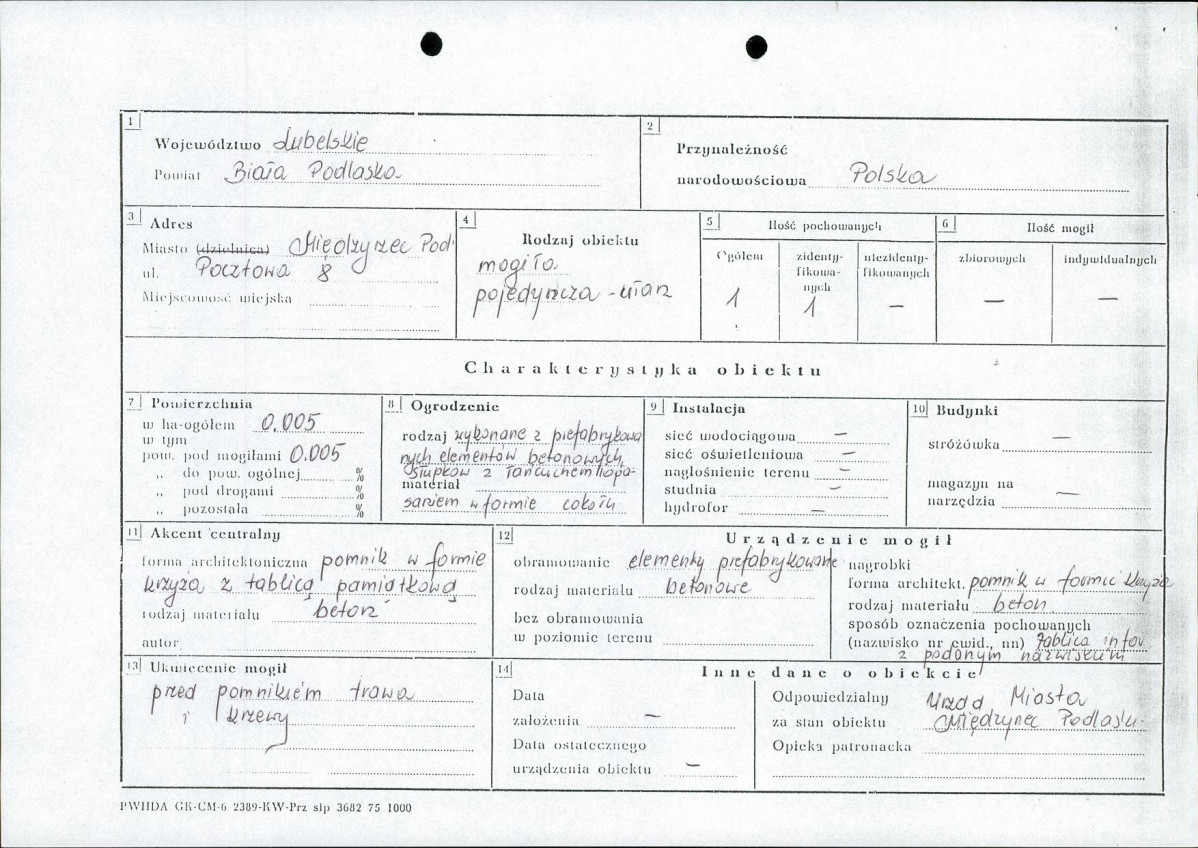 1
Województwo Lubelskie
Powiat Biała Podlaska
2
Przynależność
narodowościowa Polska
3 Adres
Miasto (dzielnica) Międzyrzec Podl
ul. Pocztowa 8
Miejscowość wiejska
4
Rodzaj obiektu
mogiła
pojedyncza - ułan
5 Ilość pochowanych
Ogółem
zidenty-
fikowa-
nych
niezidenty-
fikowanych
1 1 —
6 Ilość mogił
zbiorowych indywidualnych
— —
Charakterystyka obiektu
7 Powierzchnia
w ha-ogółem 0.005
w tym
pow. pod mogiłami 0.005
„ do pow. ogólnej %
„ pod drogami %
„ pozostała %
8 Ogrodzenie
rodzaj wykonane z prefabrykowa
nych elementów betonowych
słupków z łańcuchem i opa-
materiał
saniem w formie cokołu
9 Instalacja
sieć wodociągowa —
sieć oświetleniowa —
nagłośnienie terenu —
studnia —
hydrofor —
10 Budynki
stróżówka —
magazyn na
narzędzia —
11 Akcent centralny
forma architektoniczna pomnik w formie
krzyża z tablicą pamiątkową
rodzaj materiału beton
autor
12 Urządzenie mogił
obramowanie elementy prefabrykowane
rodzaj materiału betonowe
bez obramowania
w poziomie terenu
nagrobki
forma architekt. pomnik w formie krzyża
rodzaj materiału beton
sposób oznaczenia pochowanych
(nazwisko nr ewid., nn) tablica infor
z podanym nazwiskiem
13 Ukwiecenie mogił
przed pomnikiem trawa
i krzewy
14 Inne dane o obiekcie
Data
założenia —
Data ostatecznego
urządzenia obiektu —
Odpowiedzialny Urząd Miasta
za stan obiektu Międzyrzec Podlaski
Opieka patronacka
PWHDA GK-CM-6 2389-KW-Prz slp 3682 75 1000